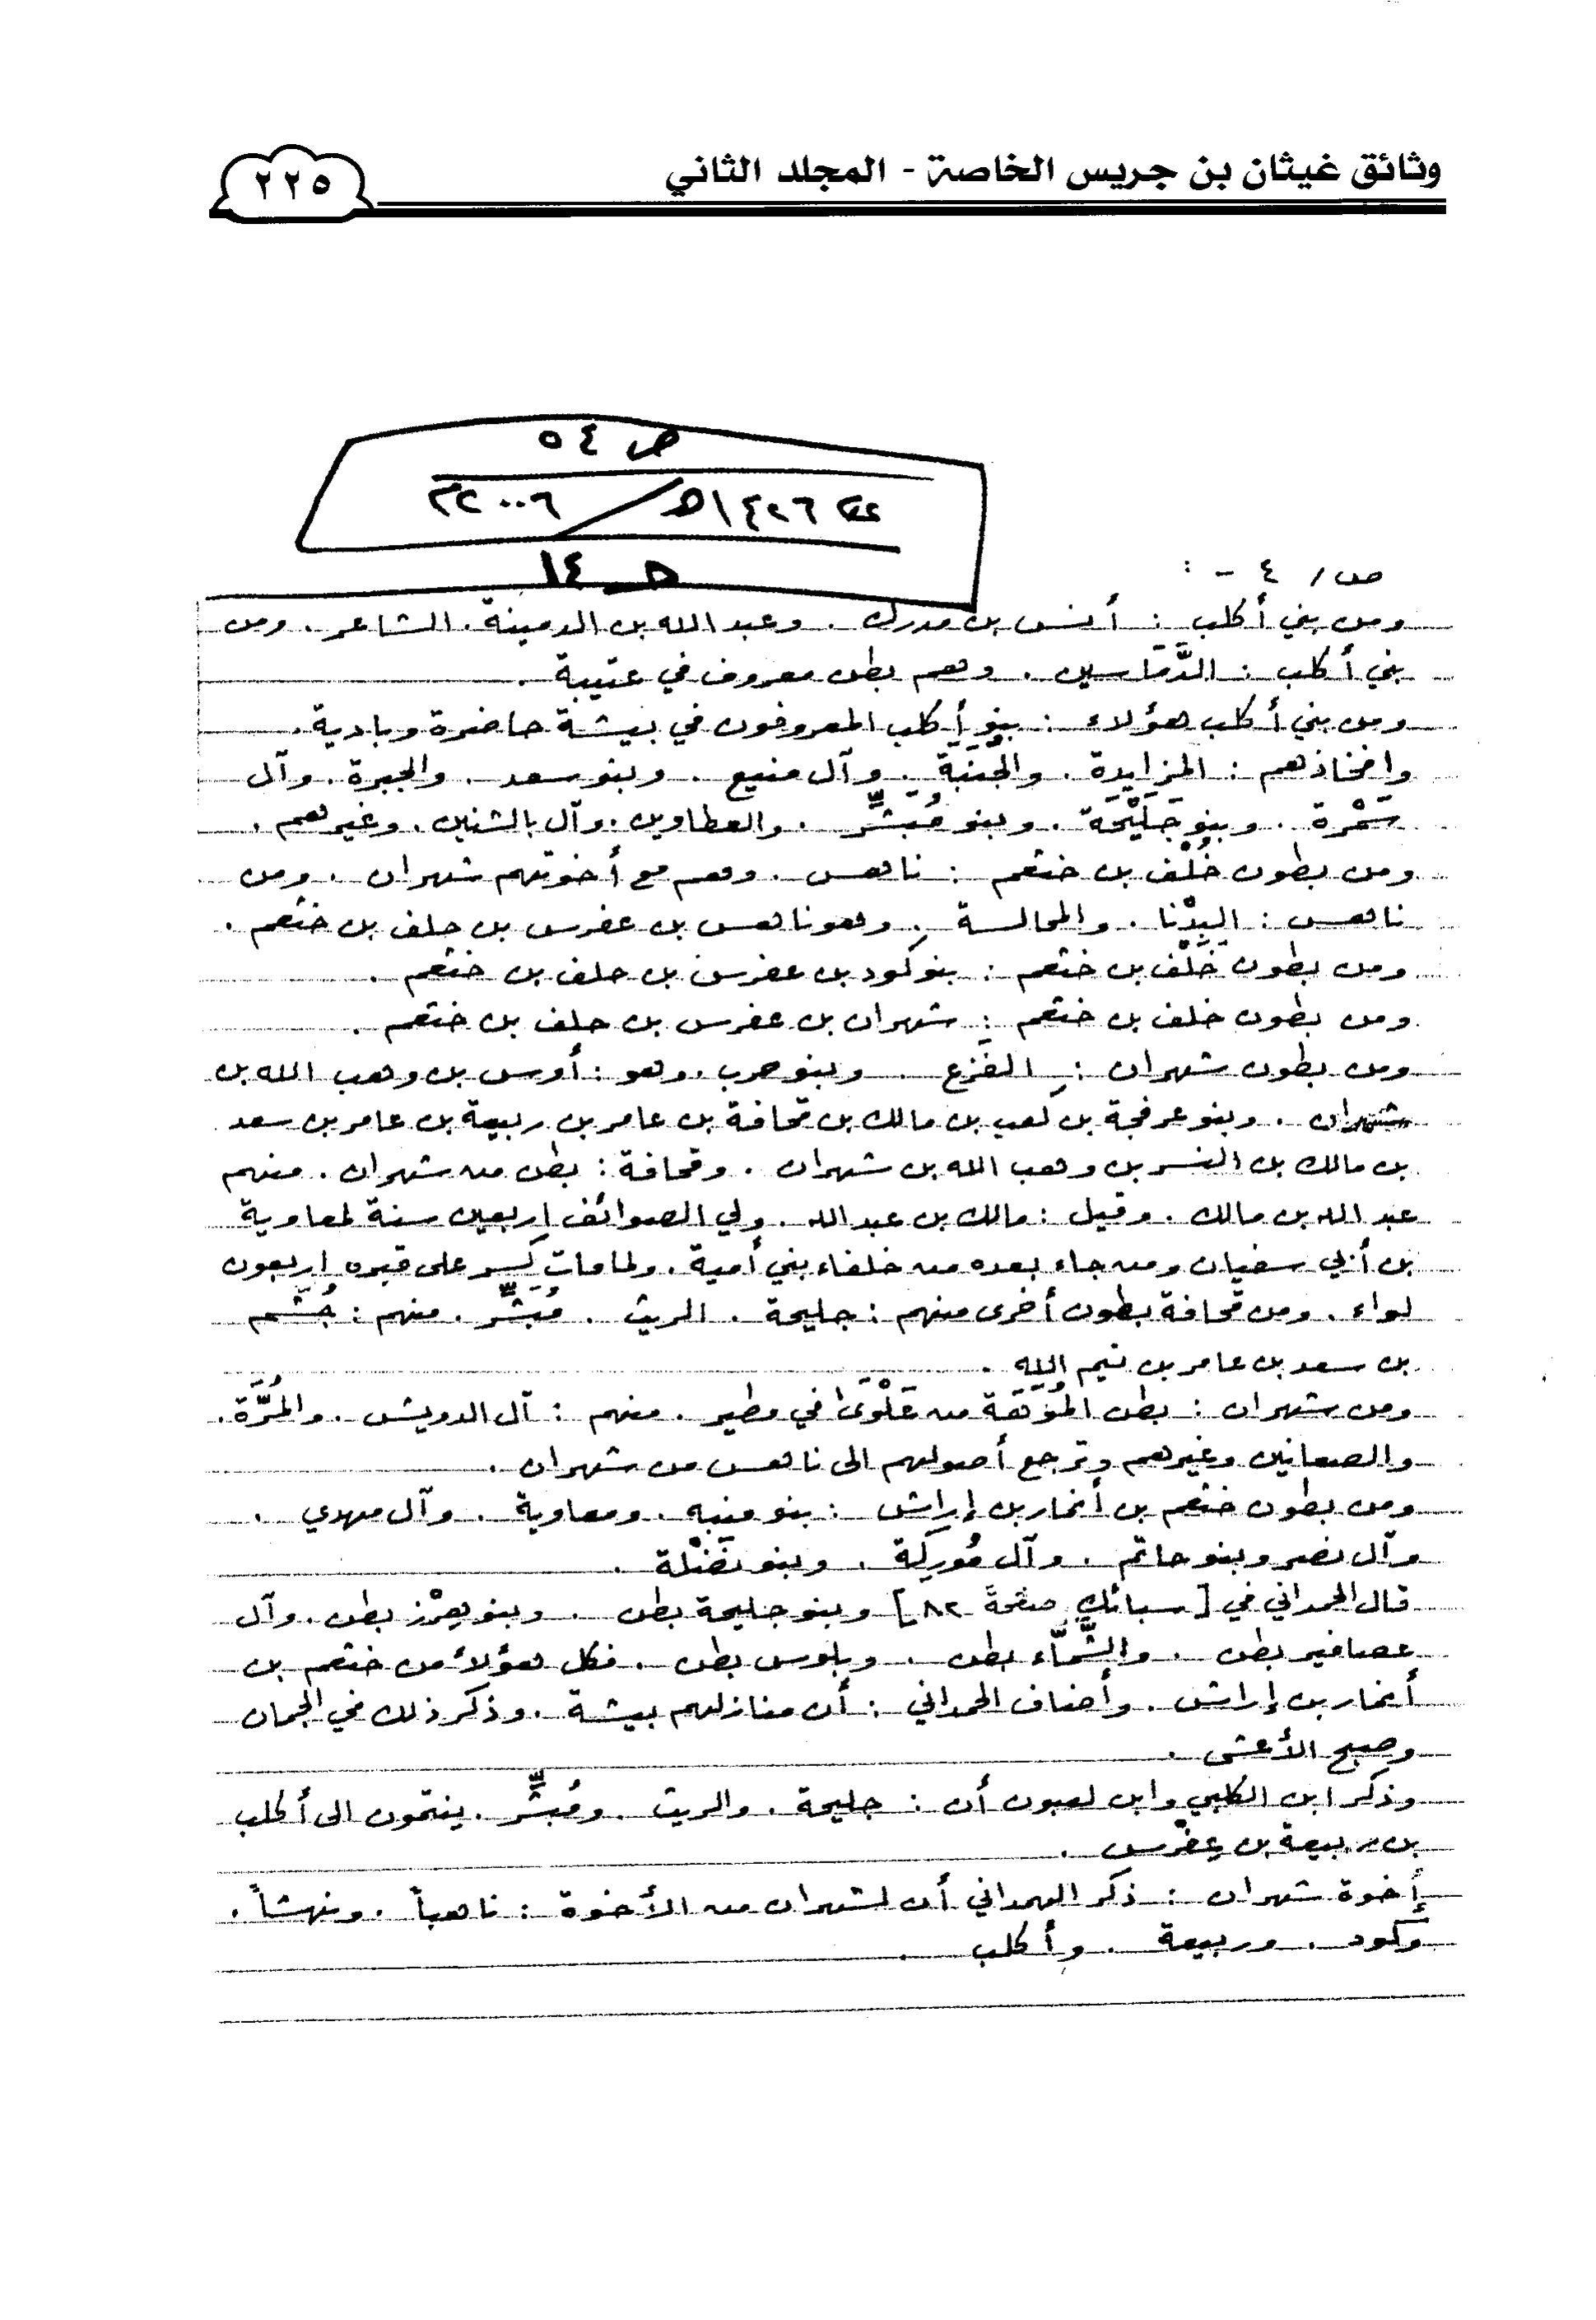 وثائق غيثان بن جريس الخاصة - المجلد الثاني
٢٢٥
ص ٥٤
١٤٢٦هـ / ٢٠٠٦م
حـ ١٤
ص / ٤ - :
ومن بني أكلب : أنس بن مدرك . وعبد الله بن الدمينة . الشاعر . ومن
بني أكلب : الدَّمَاسين . وهم بطن معروف في عتيبة .
ومن بني أكلب هؤلاء : بنو أكلب المعروفون في بيشة حاضرة وبادية .
وافخاذهم : المزايدة . والجُنَبَة . وآل منيع . وبنو سعد . والجبرة . وآل
سَمْرة . وبنو جَلَيْحَة . وبنو مُبَشِّر . والعطاوين . وآل بالشنين . وغيرهم .
ومن بطون خُلْف بن خثعم : ناهس . وهم مع أخوتهم شهران . ومن
ناهس : البِدْنا . والمحالسة . وهو ناهس بن عفرس بن حلف بن خثعم .
ومن بطون خَلْف بن خثعم : بنو كود بن عفرس بن حلف بن خثعم .
ومن بطون خلف بن خثعم : شهران بن عفرس بن حلف بن خثعم .
ومن بطون شهران : الفَزع . وبنو حرب . وهو : أوس بن وهب الله بن
شهران . وبنو عرفجة بن كعب بن مالك بن قحافة بن عامر بن ربيعة بن عامر بن سعد
بن مالك بن النسر بن وهب الله بن شهران . وقحافة : بطن من شهران . منهم
عبد الله بن مالك . وقيل : مالك بن عبد الله . ولي الصوائف اربعين سنة لمعاوية
بن أبي سفيان ومن جاء بعده من خلفاء بني أمية . ولما مات كُسِر على قبره اربعون
لواء . ومن قحافة بطون أخرى منهم : جليحة . الريث . مُبَشِّر . منهم : جُشَم
بن سعد بن عامر بن تيم الله .
ومن شهران : بطن المُوَهَة من عَلْوَى في مطير . منهم : آل الدويش . والمُرَّة .
والصعانين وغيرهم وترجع أصولهم الى ناهس من شهران .
ومن بطون خثعم بن أنمار بن إراش : بنو منبه . ومعاوية . وآل مهدي .
وآل نصر وبنو حاتم . وآل مُورِكة . وبنو نَضْلة .
قال الحمداني في [ سبائك صفحة ٨٢ ] وبنو جليحة بطن . وبنو هِرْز بطن . وآل
عصافير بطن . والشَّمَّاء بطن . وبلوس بطن . فكل هؤلاء من خثعم بن
أنمار بن إراش . وأضاف الحمداني : أن منازلهم بيشة . وذكر ذلك في الجمان
وصبح الأعشى .
وذكر ابن الكلبي وابن لعبون أن : جليحة . والريث . ومُبَشِّر . ينتمون الى أكلب
بن ربيعة بن عِفْرِس .
إخوة شهران : ذكر الهمداني أن لشهران من الأخوة : ناهباً . ونهشاً .
وكود . وربيعة . وأكلب .